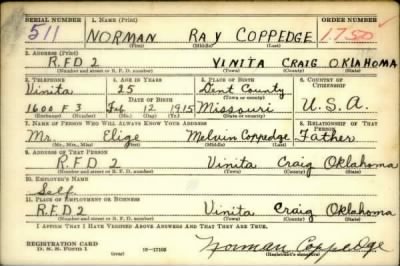 SERIAL NUMBER 1. NAME (Print) ORDER NUMBER
511 NORMAN RAY COPPEDGE 1750
(First) (Middle) (Last)
2. ADDRESS (Print)
R.F.D 2 VINITA CRAIG OKLAHOMA
(Number and street or R. F. D. number) (Town) (County) (State)
3. TELEPHONE 4. AGE IN YEARS 5. PLACE OF BIRTH 6. COUNTRY OF CITIZENSHIP
Vinita 25 Dent County
DATE OF BIRTH (Town or county)
1600 F 3 Feb 12 1915 Missouri U.S.A.
(Exchange) (Number) (Mo.) (Day) (Yr.) (State or country)
7. NAME OF PERSON WHO WILL ALWAYS KNOW YOUR ADDRESS 8. RELATIONSHIP OF THAT PERSON
Mr. Elige Melvin Coppedge Father
(Mr., Mrs., Miss) (First) (Middle) (Last)
9. ADDRESS OF THAT PERSON
R.F.D 2 Vinita Craig Oklahoma
(Number and street or R. F. D. number) (Town) (County) (State)
10. EMPLOYER'S NAME
Self.
11. PLACE OF EMPLOYMENT OR BUSINESS
R.F.D 2 Vinita Craig Oklahoma
(Number and street or R. F. D. number) (Town) (County) (State)
I AFFIRM THAT I HAVE VERIFIED ABOVE ANSWERS AND THAT THEY ARE TRUE.
REGISTRATION CARD
D. S. S. Form 1 (over) 16—17105 Norman Coppedge
(Registrant's signature)